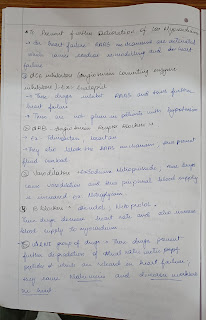 * To Prevent further Deterioration of the Myocardium
→ In heart failure RAAS mechanism are activated
which causes cardiac remodelling and the heart
failure
① ACE inhibitors (Angiotensin Converting enzyme
inhibitors) → ex → Enalapril
→ These drugs inhibit RAAS and heart further
heart failure
→ These are not given in patients with hypotension
② ARB - Angiotensin Receptor Blockers
ex → Telmisartan, losartan
→ They also block the RAAS mechanism and prevent
fluid
③ Vasodilators → Sodium Nitroprusside, these drugs
cause vasodilation and thus peripheral blood supply
is increased ex → Nitroglycerin
④ β Blockers → Atenolol, Metoprolol.
These drugs decrease heart rate and also increase
blood supply to myocardium
⑤ ARNI group of drugs → These drugs prevent
further degradation of atrial natriuretic
peptide which are released in heart failure,
they cause Natriuresis and decrease workload
on heart